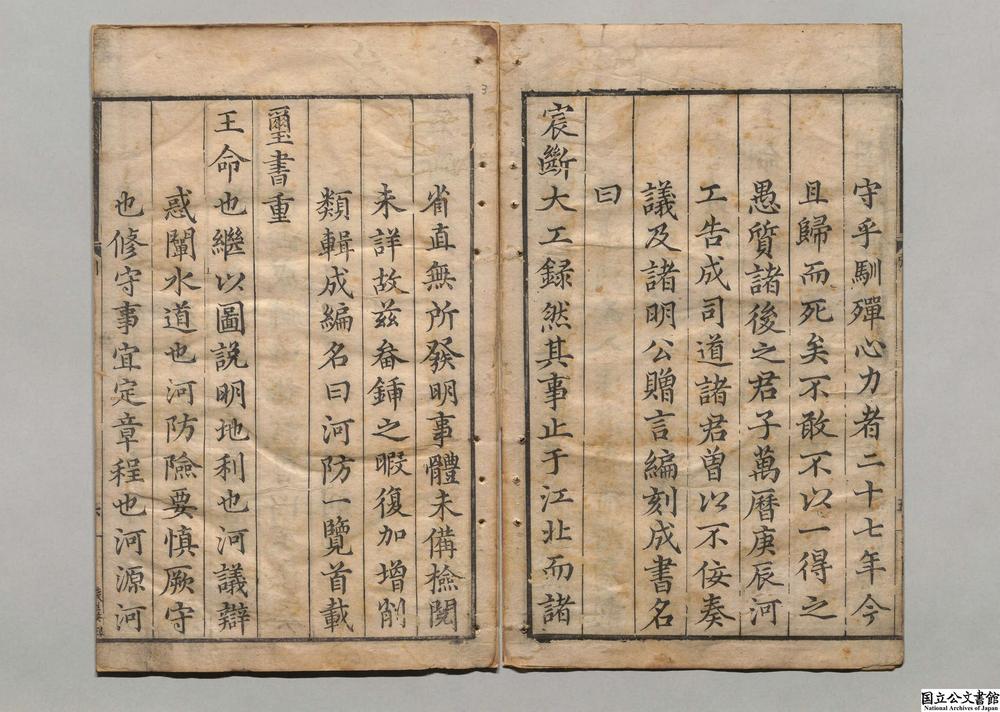 守乎馴殫心力者二十七年今
且歸而死矣不敢不以一得之
愚質諸後之君子萬曆庚辰河
工告成司道諸君曽以不佞奏
議及諸明公贈言編刻成書名
曰
宸斷大工録然其事止于江北而諸
省直無所發明事體未備撿閱
未詳故兹畚鍤之暇復加增削
類輯成編名曰河防一覽首載
璽書重
王命也繼以圖説明地利也河議辯
惑闡水道也河防險要慎厥守
也修守事宜定章程也河源河
国立公文書館
National Archives of Japan